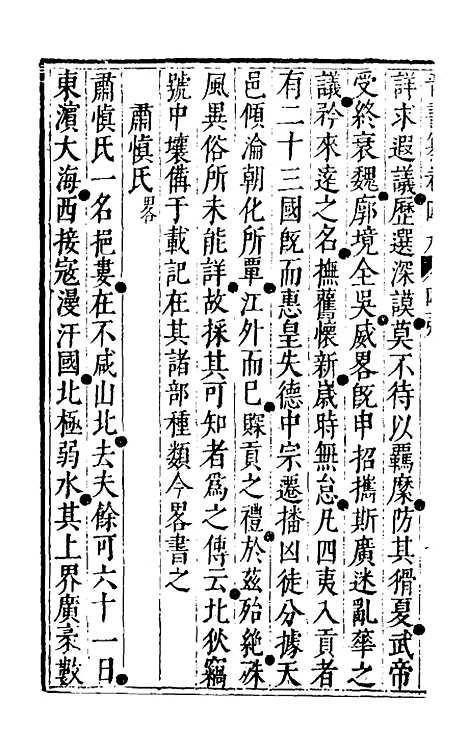 詳求遐議歷選深謨莫不待以羈縻防其猾夏武帝
受終衰魏廓境全吳威畧旣申招攜斯廣迷亂華之
議矜來遠之名撫舊懷新歲時無怠凡四夷入貢者
有二十三國旣而惠皇失德中宗遷播凶徒分據天
邑傾淪朝化所覃江外而巳賝貢之禮於兹殆絶殊
風異俗所未能詳故採其可知者爲之傳云北狄竊
號中壤備于載記在其諸部種類今畧書之
肅愼氏畧
肅愼氏一名挹婁在不咸山北去夫餘可六十一日
東濱大海西接寇漫汗國北極弱水其上界廣袤數